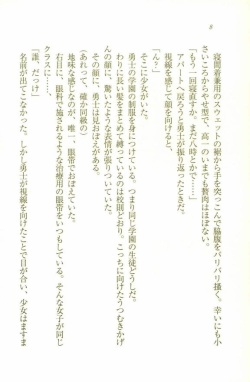 8
寝間着兼用のスウェットの裾から手を突っこんで脇腹をバリバリ掻く。幸いにも小
さいころからやせ型で、高一のいまでも贅肉はほぼない。
「もう一回寝直すか。まだ八時とかで……」
アパートへ戻ろうと勇士が振り返ったときだ。
視線を感じて顔を向けると、
「ん？」
そこに少女がいた。
勇士の学園の制服を身につけている。つまり同じ学園の生徒どうしだ。
わりに長い髪をまとめて縛っているのは校則どおり。こっちに向けたうつむきかげ
んの顔に、驚いたような表情が張りついていた。
その顔に、勇士は見おぼえがある。
（あれって、確か同級の）
地味な感じなのが、唯一、眼帯でおぼえていた。
右目に、眼科で施されるような治療用の眼帯をいつもしている。そんな女子が同じ
クラスに……。
「誰、だっけ」
名前が出てこなかった。しかし勇士が視線を向けたことで目が合い、少女はますま